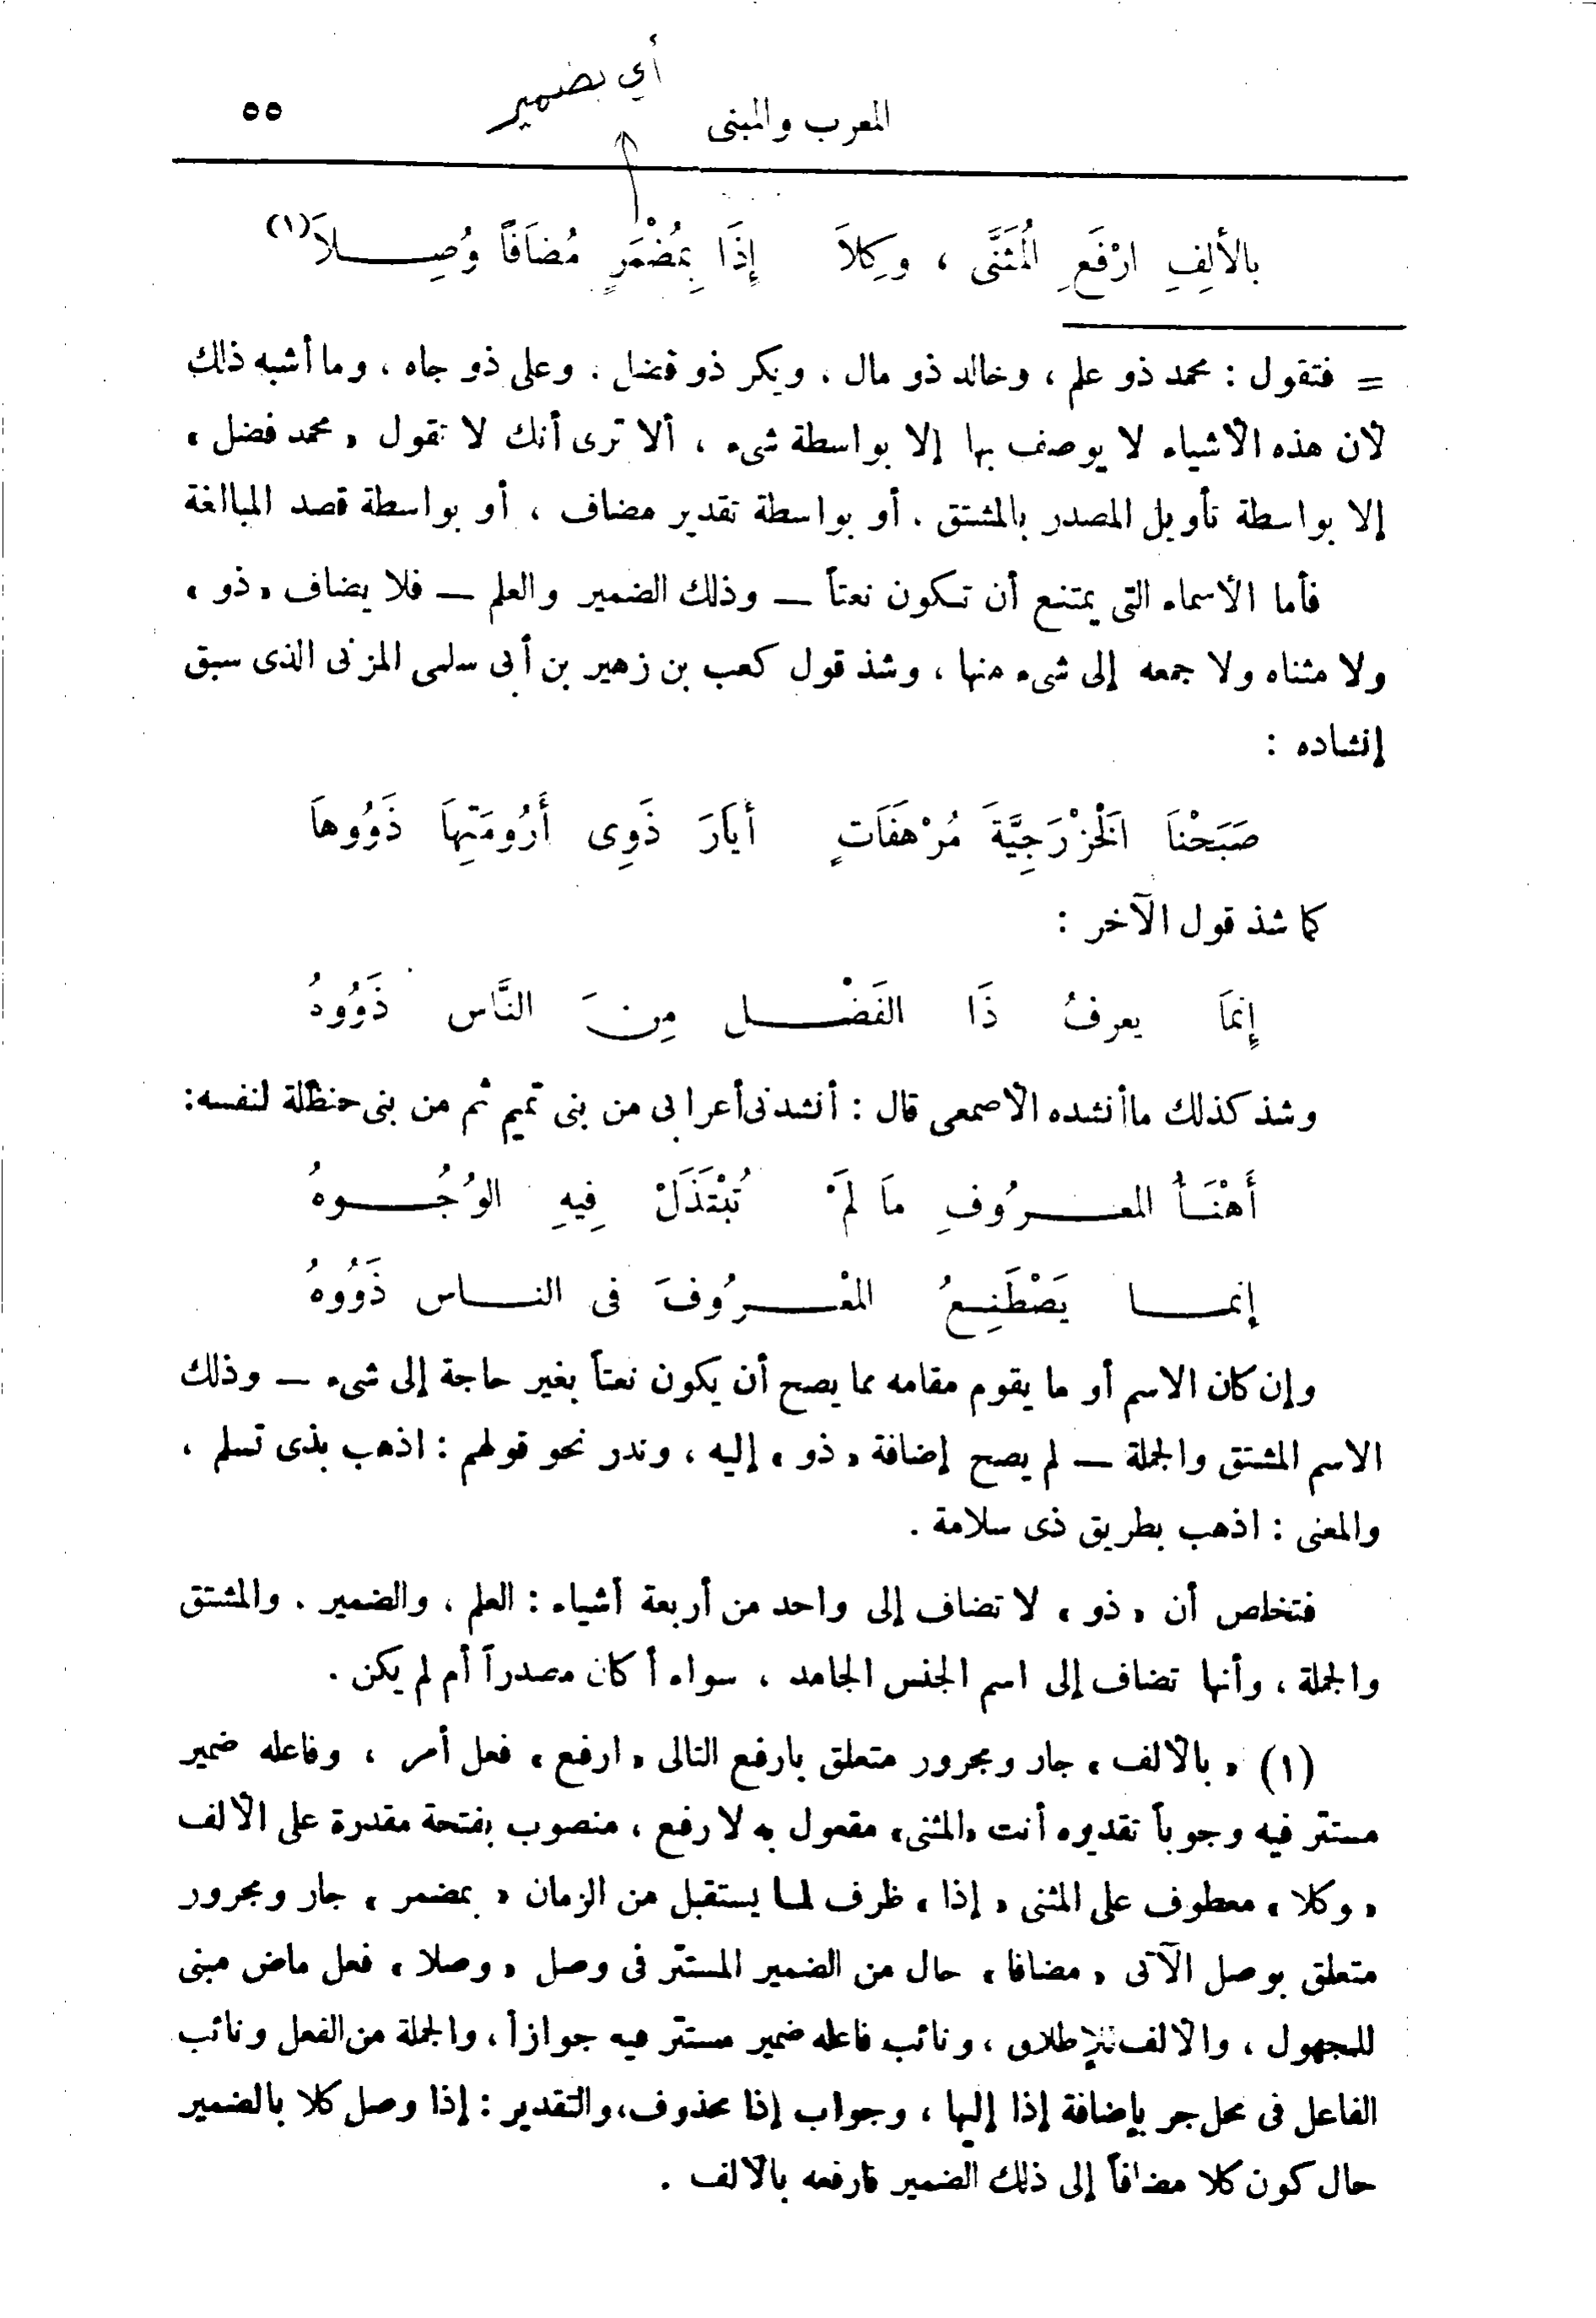 أي بضمير
المعرب والمبنى ٥٥
بالألِفِ ارْفَعِ الُمثَنَّى ، وكِلاَ إِذَا بِمُضْمَرٍ مُضاَفاً وُصِــلاَ(١)
= فتقول : محمد ذو علم ، وخالد ذو مال ، وبكر ذو فضل ، وعلى ذو جاه ، وما أشبه ذلك
لأن هذه الأشياء لا يوصف بها إلا بواسطة شىء ، ألا ترى أنك لا تقول « محمد فضل »
إلا بواسطة تأويل المصدر بالمشتق . أو بواسطة تقدير مضاف ، أو بواسطة قصد المبالغة
فأما الأسماء التى يمتنع أن تكون نعتاً — وذلك الضمير والعلم — فلا يضاف « ذو »
ولا مثناه ولا جمعه إلى شىء منها ، وشذ قول كعب بن زهير بن أبى سلمى المزنى الذى سبق
إنشاده :
صَبَحْناَ اَلخزْرَجِيَّةَ مُرْهَفَاَتٍ أَباَرَ ذَوِى أَرُومَتِهاَ ذَوُوهاَ
كما شذ قول الآخر :
إِنمَّاَ يعرفُ ذَا الفَضْــلِ مِنَ النَّاس ذَوُوهُ
وشذ كذلك ما أنشده الأصمعى قال : أنشدنى أعرابى من بنى تميم ثم من بنى حنظلة لنفسه:
أَهْنَـأُ المعــرُوفِ ماَ لَمْ تُبْتَذَلْ فِيهِ الوُجُــوهُ
إنمــا يَصْطَنِـعُ المْعْــرُوفَ فى النــاس ذَوُوهُ
وإن كان الاسم أو ما يقوم مقامه مما يصح أن يكون نعتاً بغير حاجة إلى شىء — وذلك
الاسم المشتق والجملة — لم يصح إضافة « ذو » إليه ، وندر نحو قولهم : اذهب بذى تسلم ،
والمعنى : اذهب بطريق ذى سلامة .
فتخلص أن « ذو » لا تضاف إلى واحد من أربعة أشياء : العلم ، والضمير . والمشتق
والجملة ، وأنها تضاف إلى اسم الجنس الجامد ، سواء أكان مصدراً أم لم يكن .
(١) « بالألف » جار ومجرور متعلق بارفع التالى « ارفع » فعل أمر ، وفاعله ضمير
مستتر فيه وجوباً تقديره أنت «المثنى» مفعول به لارفع ، منصوب بفتحة مقدرة على الألف
« وكلا » معطوف على المثنى « إذا » ظرف لما يستقبل من الزمان « بمضمر » جار ومجرور
متعلق بوصل الآتى « مضافا » حال من الضمير المستتر فى وصل « وصلا » فعل ماض مبنى
للمجهول ، والألف للإطلاق ، ونائب فاعله ضمير مستتر فيه جوازاً ، والجملة من الفعل ونائب
الفاعل فى محل جر بإضافة إذا إليها ، وجواب إذا محذوف،والتقدير : إذا وصل كلا بالضمير
حال كون كلا مضافاً إلى ذلك الضمير فارفعه بالألف .